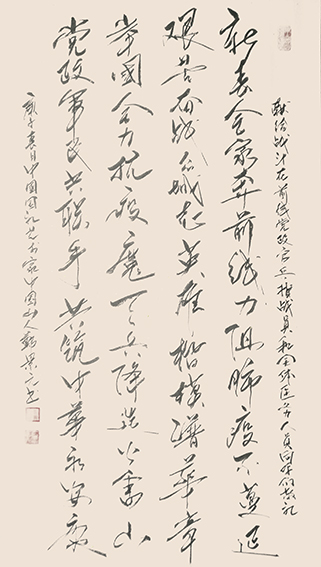 献给战斗在前线党政官兵、指战员和全体医务人员同胞们敬礼
新春舍家奔前线力阻肺疫不蔓延
艰苦奋战众城起英雄楷模谱华章
举国全力抗疫魔天兵降火雷山
党政军民共联手共筑中华永安康
庚子春日中国国礼艺术家中国山人书